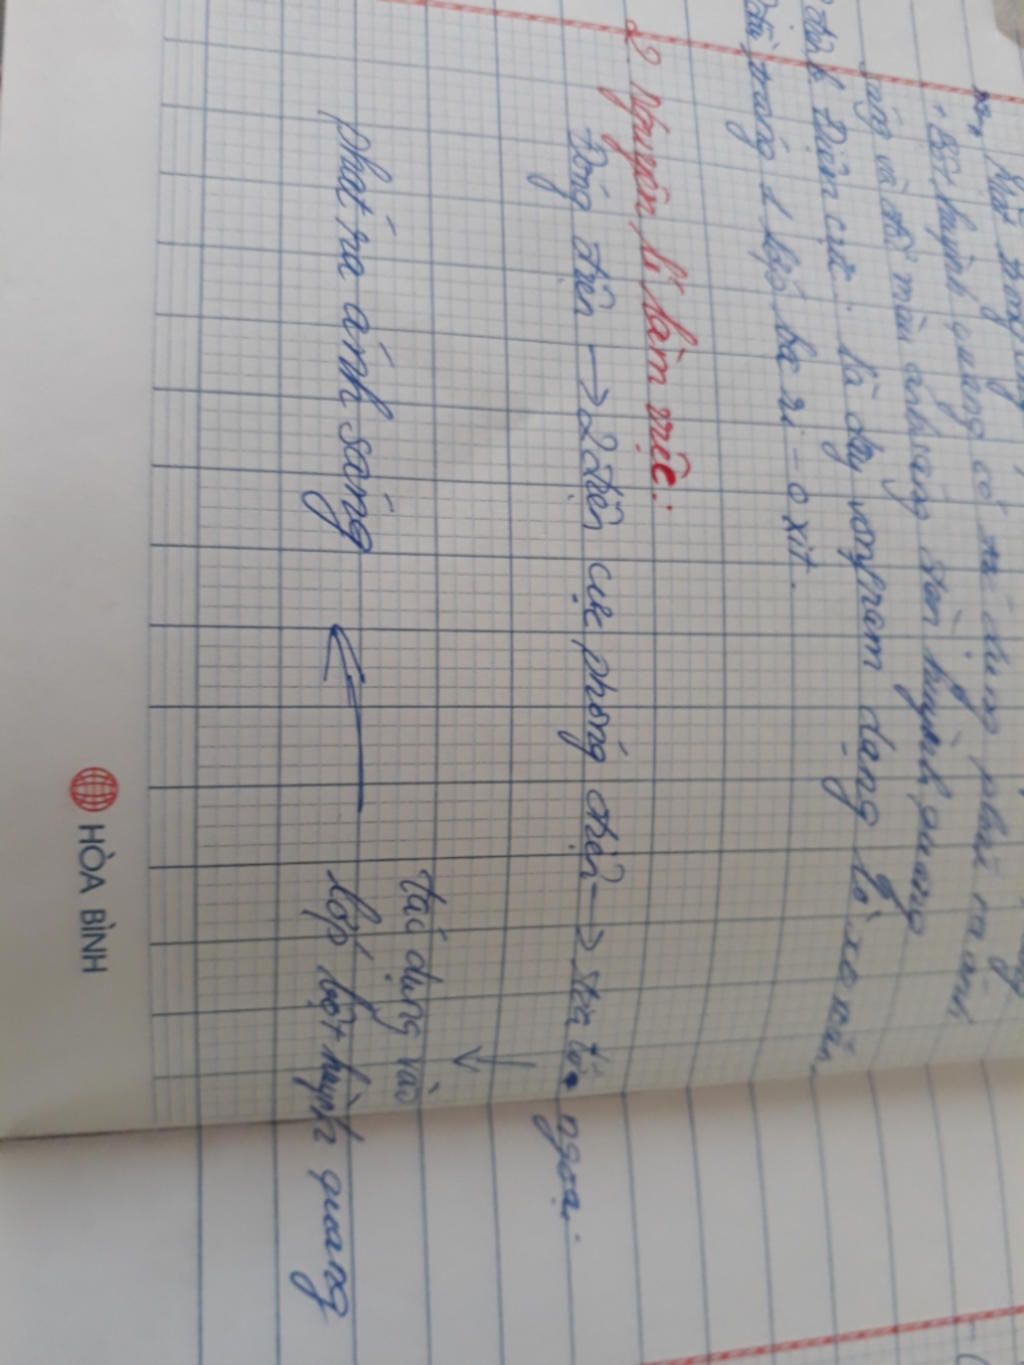 + Bột huỳnh quang có tác dụng phát ra ánh
sáng và đổi màu ánh sáng đèn huỳnh quang
b. Điện cực: là dây vonfram dạng lò xo xoắn,
tráng 1 lớp ba ri - oxit.
2. Nguyên lí làm việc:
Đóng điện → 2 điện cực phóng điện → tia tử ngoại
↓
tác dụng vào
phát ra ánh sáng ← lớp bột huỳnh quang
HÒA BÌNH